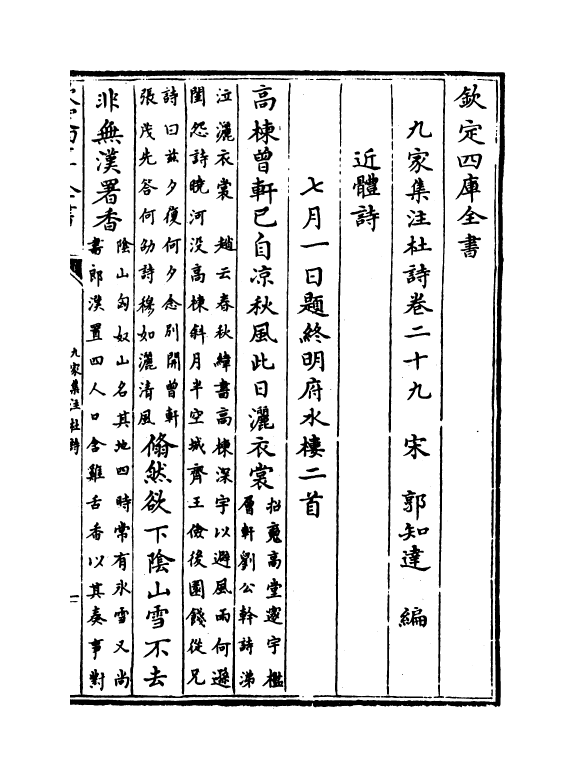 欽定四庫全書
九家集注杜詩卷二十九　宋　郭知達　編
近體詩
七月一日題終明府水樓二首
高棟曾軒已自凉秋風此日灑衣裳
招䰟高堂邃宇檻
層軒劉公幹詩涕
泣灑衣裳　趙云春秋緯書高棟深宇以避風雨何遜
閨怨詩曉河没高棟斜月半空城齊王儉後園餞從兄
詩曰兹夕復何夕念别開曾軒
張茂先答何劭詩穆如灑清風
翛然欲下陰山雪不去
非無漢署香
陰山匈奴山名其地四時常有氷雪又尚
書郎漢置四人口含雞舌香以其奏事對
九家集注杜詩
一